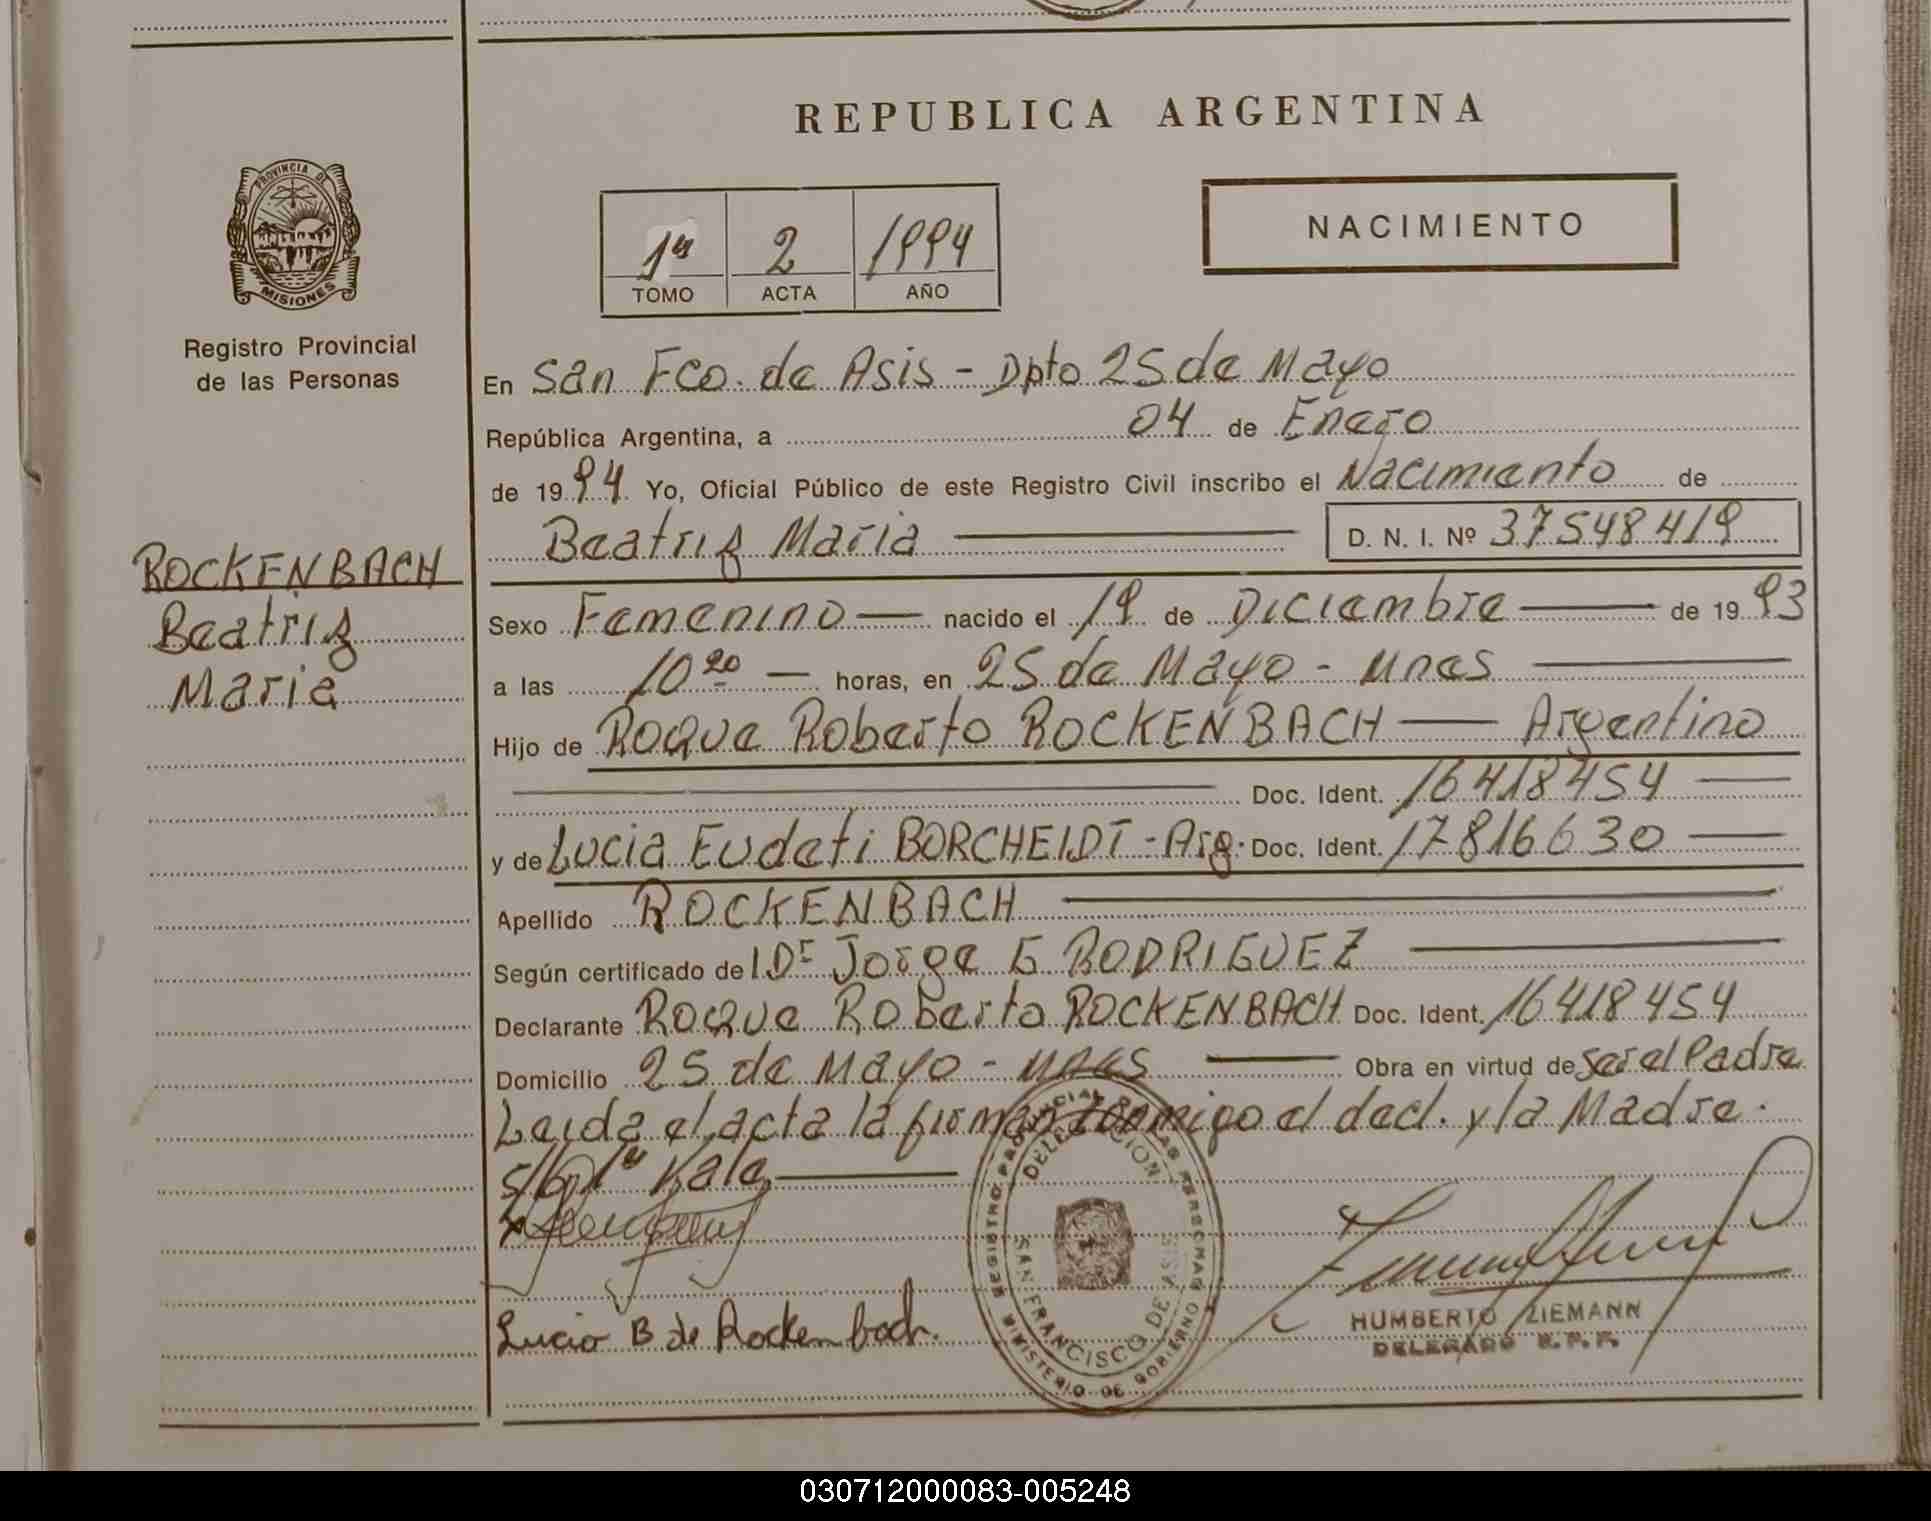 REPUBLICA ARGENTINA
PROVINCIA DE
MISIONES
Registro Provincial
de las Personas
1º 2 1994
TOMO ACTA AÑO
NACIMIENTO
En San Fco. de Asis - Dpto 25 de Mayo
República Argentina, a 04 de Enero
de 1994 Yo, Oficial Público de este Registro Civil inscribo el Nacimiento de
Beatriz Maria D. N. I. Nº 37548419
ROCKENBACH
Beatriz
Maria
Sexo Femenino nacido el 19 de Diciembre de 1993
a las 10 20 horas, en 25 de Mayo - Mnes
Hijo de Roque Roberto ROCKENBACH Argentino
Doc. Ident. 16418454
y de Lucia Eudeti BORCHEIDT - Arg. Doc. Ident. 17816630
Apellido ROCKENBACH
Según certificado del Dr Jorge G RODRIGUEZ
Declarante Roque Roberto ROCKENBACH Doc. Ident. 16418454
Domicilio 25 de Mayo - Mnes Obra en virtud de ser el Padre
Leida el acta la firman conmigo el decl. y la Madre.
Lucia B de Rockenbach.
REGISTRO PROVINCIAL DE LAS PERSONAS
DELEGACION
SAN FRANCISCO DE ASIS
MINISTERIO DE GOBIERNO
HUMBERTO ZIEMANN
DELEGADO R. P. P.
030712000083-005248